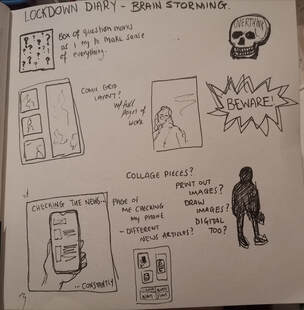 LOCKDOWN DIARY - BRAIN STORMING.
Box of question marks
as I try to make sense
of everything.
OVERTHINK
COMIC GRID
LAYOUT?
pages of
work
BEWARE!
COLLAGE PIECES?
PRINT OUT
IMAGES?
DRAW
IMAGES?
DIGITAL
TOO?
CHECKING THE NEWS...
...CONSTANTLY
PAGE OF
ME CHECKING
MY PHONE
- DIFFERENT
NEWS ARTICLES?